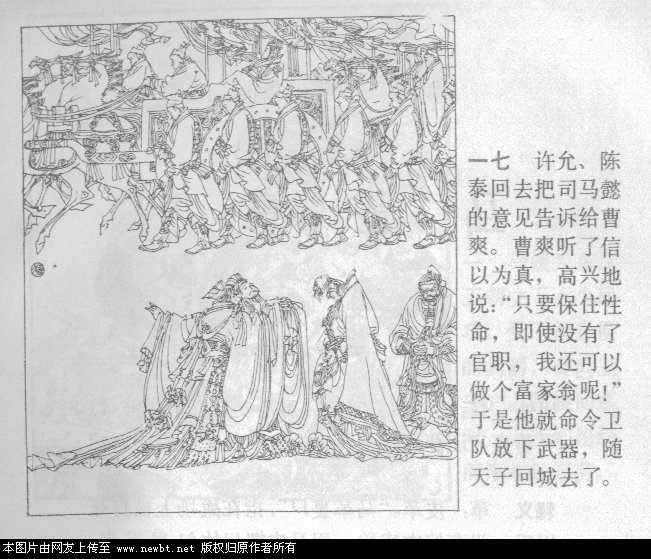 一七　许允、陈
泰回去把司马懿
的意见告诉给曹
爽。曹爽听了信
以为真，高兴地
说：“只要保住性
命，即使没有了
官职，我还可以
做个富家翁呢！”
于是他就命令卫
队放下武器，随
天子回城去了。
本图片由网友上传至 www.newbt.net 版权归原作者所有